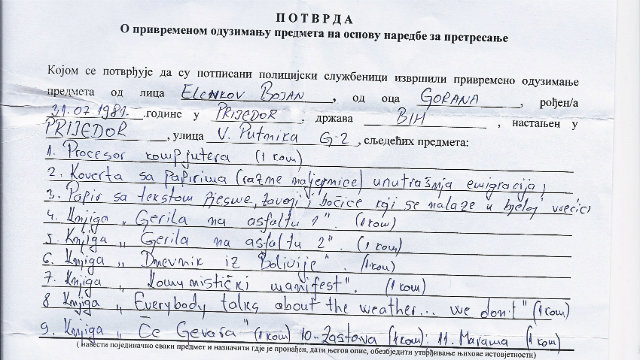 ПОТВРДА
О привременом одузимању предмета на основу наредбе за претресање
Којом се потврђује да су потписани полицијски службеници извршили привремено одузимање
предмета од лица Elenkov Bojan, од оца GORANA, рођен/а
31.07 1981. године у PRIJEDOR, држава BIH, настањен у
PRIJEDOR, улица V. Putnika G-2, сљедећих предмета:
1. Procesor kompjutera (1 kom)
2. Koverta sa papirima (razne naljepnice) unutrašnja emigracija;
3. Papir sa tekstom pjesme, zavoji i bočice koji se nalaze u bjeloj vrećici
4. Knjiga „Gerila na asfaltu 1". (1 kom)
5. Knjiga „Gerila na asfaltu 2". (1 kom)
6. Knjiga „Dnevnik iz Bolivije". (1 kom)
7. Knjiga „Komunistički manifest". (1 kom)
8 Knjiga „Everybody talks about the weather... we don't" (1 kom)
9. Knjiga „Če Gevara" (1 kom) 10-Zastava (1 kom); 11. Marama (1 kom)
(навести појединачно сваки предмет и назначити гдје је пронађен, дати његов опис, обезбједити утврђивање њихове истовјетности)